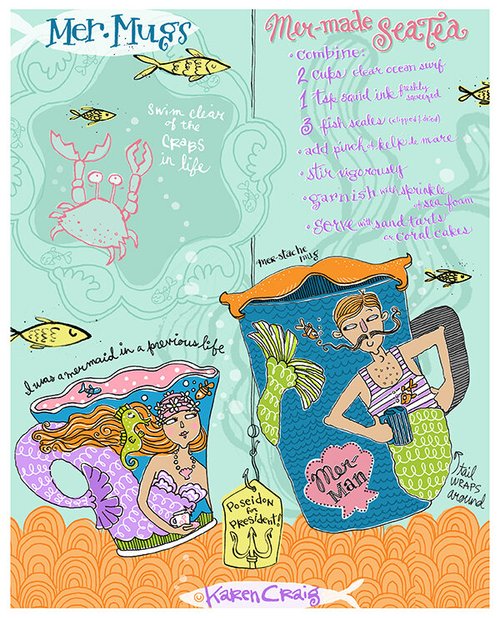 Mer-Mugs
Mer-made SeaTea
• Combine:
2 cups clear ocean surf
1 tsp squid ink freshly squeezed
3 fish scales (clipped/dried)
• add pinch of kelp de mare
• stir vigorously
• garnish with sprinkle
of sea foam
• serve with sand tarts
or coral cakes
swim clear
of the
CRABS
in life
mer-stache
mug
I was a mermaid in a previous life
Mer-
Man
Poseidon
for
President!
tail
WRAPS
around
Karen Craig